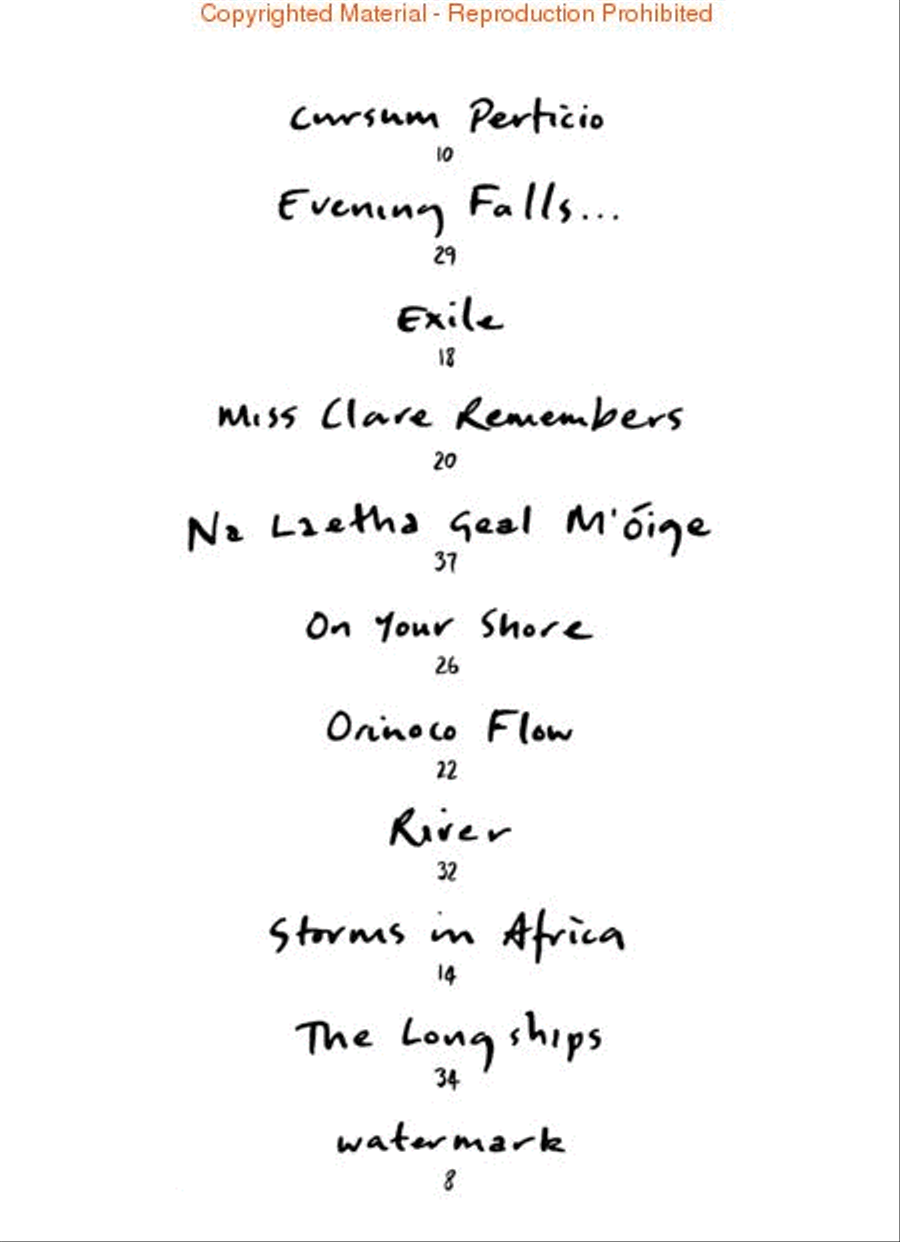 Copyrighted Material - Reproduction Prohibited
Cursum Perticio
10
Evening Falls...
29
Exile
18
Miss Clare Remembers
20
Na Laetha Geal M'óige
37
On Your Shore
26
Orinoco Flow
22
River
32
Storms in Africa
14
The Longships
34
watermark
8